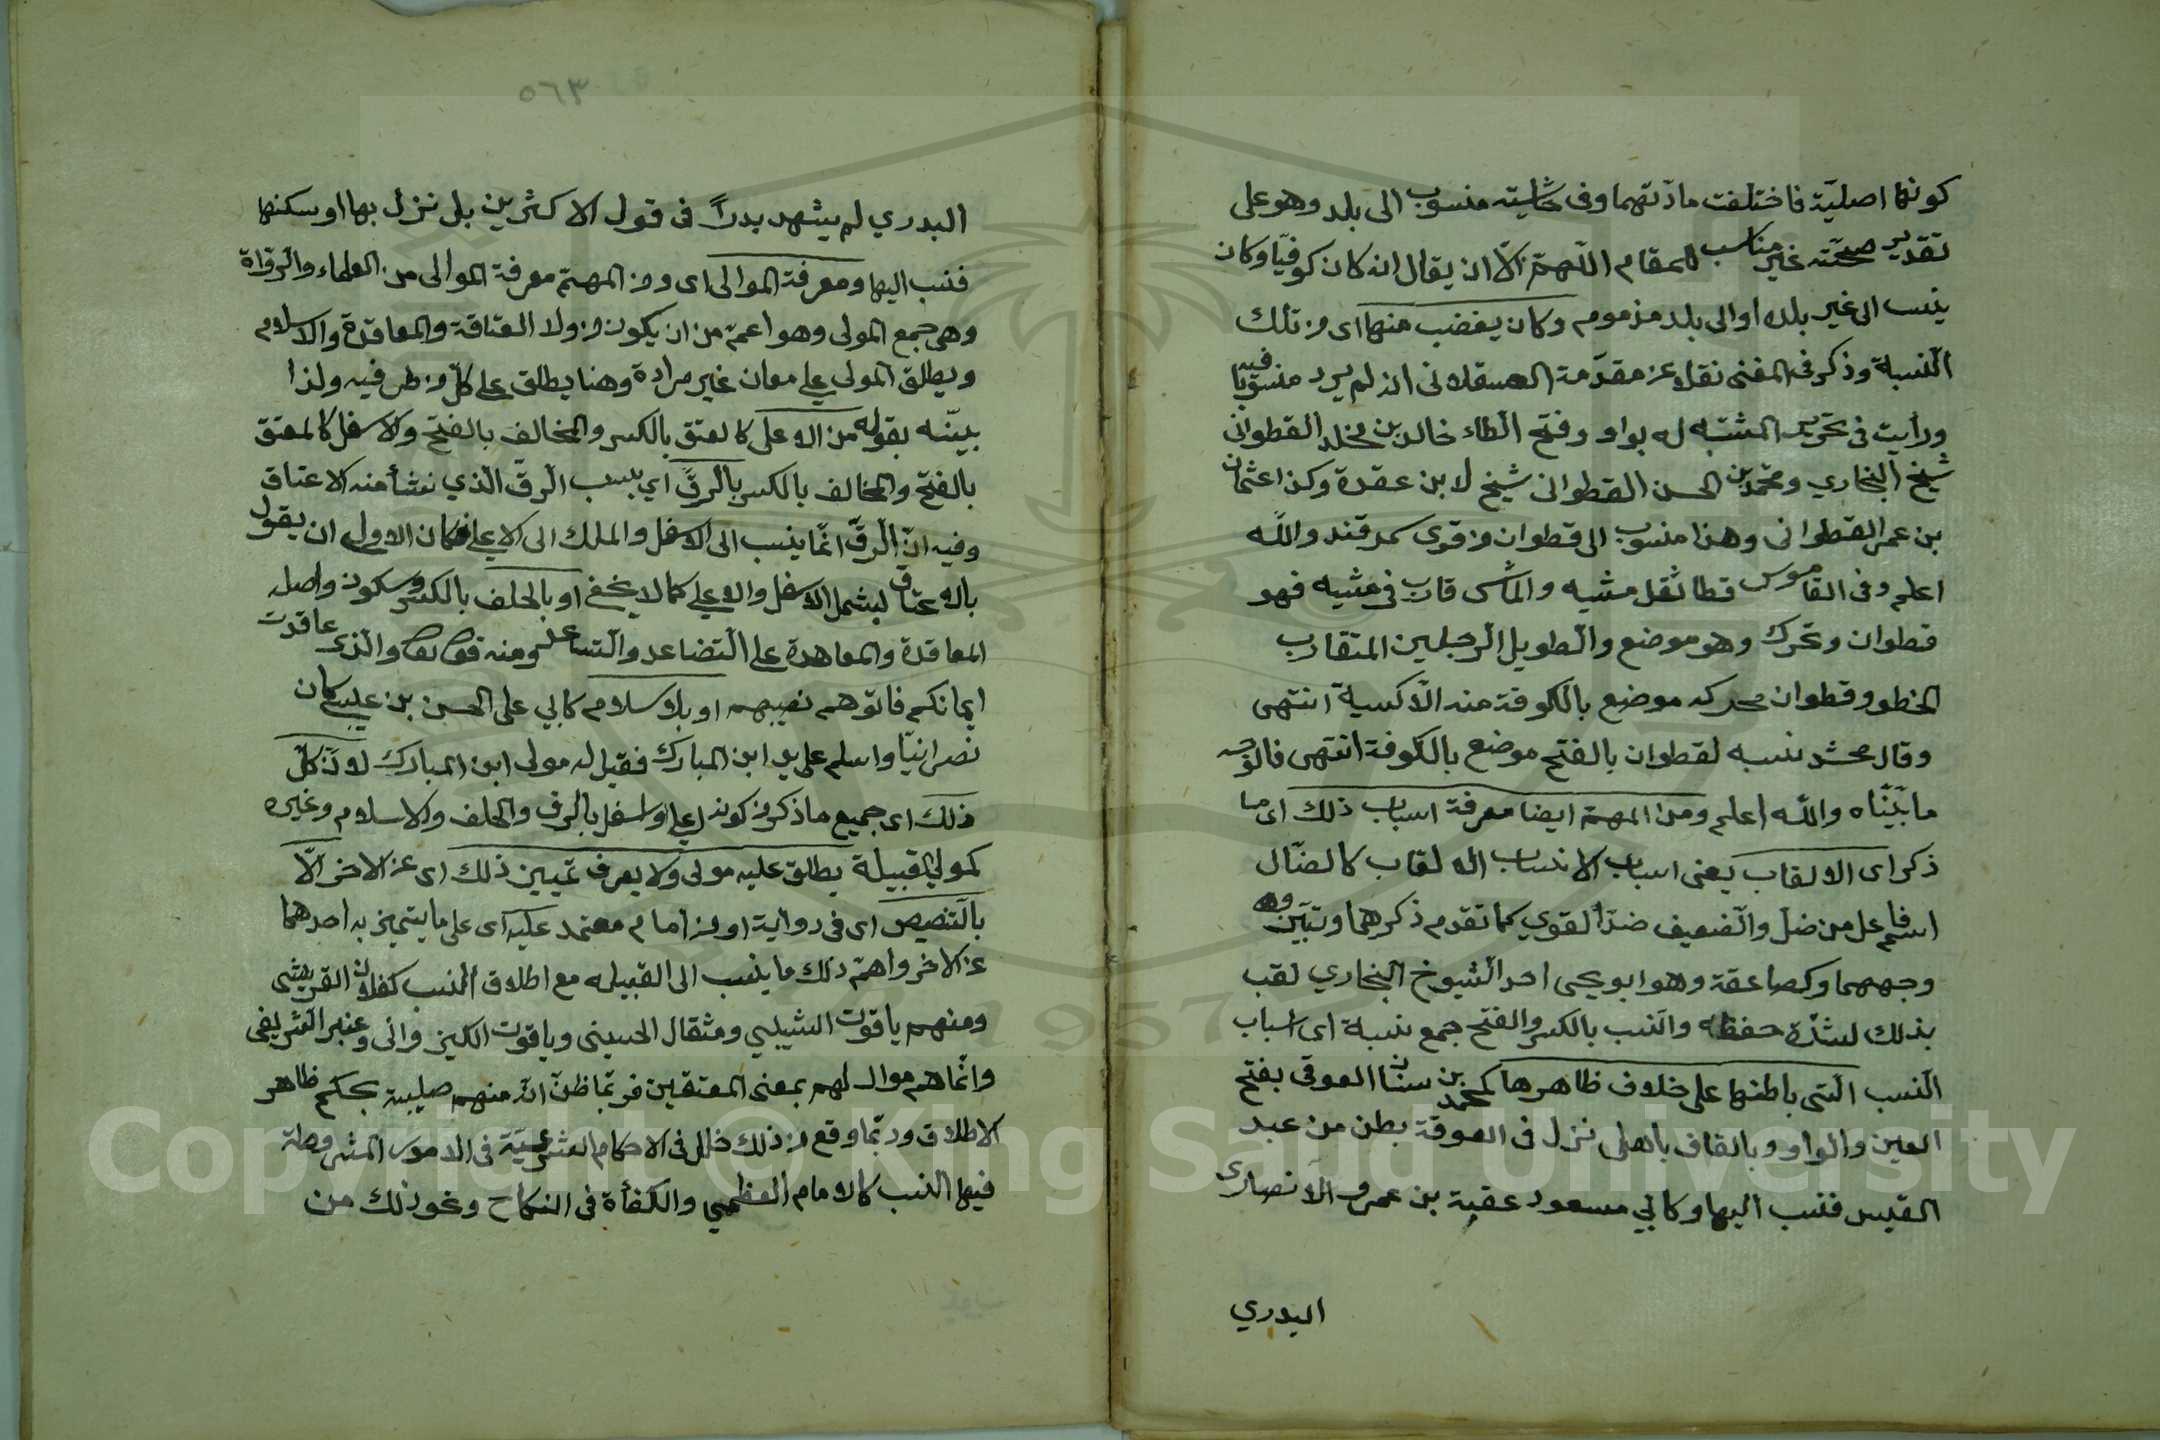 كونها اصليّة فاختلفت مادّتهما وفى حاشيته منسوب الى بلد وهو على
تقدير صحّته غير مناسب للمقام اللّهمّ الّا ان يقال انه كان كوفيّا وكان
ينسب الى غير بلده او الى بلد مذموم وكان يغضب منها اى من تلك
النّسبة وذكر فى المغنى نقلا عن مقدّمة العسقلانى انه لم يرد منسوبا فيه
ورأيت فى تحرير المشتبه له بواو وفتح الطاء خالد بن مخلد القطوانى
شيخ البخاري ومحمّد بن الحسن القطوانى شيخ لابن عقدة وكذا عثمان
بن عمر القطوانى وهذا منسوب الى قطوان من قوى سمرقند واللّه
اعلم وفى القاموس قطا ثقل مشيه والماشى قارب فى مشيه فهو
قطوان وتحرك وهو موضع والطويل الرجلين المتقارب
الخطو وقطوان محركه موضع بالكوفة منه الاكسية انتهى
وقال محشد نسبه لقطوان بالفتح موضع بالكوفة انتهى فالوجه
ما بيّنّاه واللّه اعلم ومن المهمّ ايضا معرفة اسباب ذلك اى ما
ذكر اى الالقاب يعنى اسباب الانساب الالقاب كالضّال
اسم فاعل من ضلّ والضعيف ضدّ القوي كما تقدم ذكرهما وتبيّن وجه
وجههما وكصاعقة وهو ابو يحيى احد الشيوخ البخاري لقب
بذلك لشدّة حفظه والنسب بالكسر والفتح جمع نسبة اى اسباب
النسب الّتى باطنها على خلاف ظاهرها كمحمد بن سنان العوقى بفتح
العين والواو وبالقاف باهلى نزل فى العوقة بطن من عبد
القيس فنسب اليها وكابي مسعود عقبة بن عمرو الانصارى
البدري
٥٦٣
البدري لم يشهد بدراً فى قول الاكثرين بل نزل بها او سكنها
فنسب اليها ومعرفة الموالى اى ومن المهمّ معرفة الموالى من العلماء والرواة
وهى جمع المولى وهو اعمّ من ان يكون من ولا العتاقة والمعاقدة والاسلام
ويطلق المولى على معان غير مرادة وهنا يطلق على كلّ من طرفيه ولذا
بيّنه بقوله من الاعلى كالمعتق بالكسر والمحالف بالفتح والاسفل كالمعتق
بالفتح والمحالف بالكسر بالرقّ اي بسبب الرقّ الّذي ينشأ منه الاعتاق
وفيه انّ الرقّ انّما ينسب الى الاسفل والملك الى الاعلى فكان الاولى ان يقول
بالاعتاق ليشمل الاسفل والاعلى كما لا يخفى او بالحلف بالكسر وسكون واصله
المعاقدة والمعاهدة على التعاضد والتساعد ومنه قوله تعالى والّذين عاقدت
ايمانكم فاتوهم نصيبهم او بالاسلام كابي على الحسن بن عيسى كان
نصرانيّا واسلم على يد ابن المبارك فقيل له مولى ابن المبارك لانّ كلّ
ذلك اى جميع ما ذكر من كونه اعلى او اسفل بالرق والحلف والاسلام وغيره
كمولى القبيلة يطلق عليه مولى ولا يعرف تمييز ذلك اى عن الاخر الّا
بالتّنصيص اى فى رواية او من امام معتمد عليه اى على ما يتميّز به احدهما
عن الاخر واهمّ ذلك ما ينسب الى القبيله مع اطلاق النسب كفلان القريشى
ومنهم ياقوت الشيبي ومثقال الحسينى وياقوت الكليز وانى وعنبر الشريفى
وانّما هم موال لهم بمعنى المعتقين فربّما ظنّ انّه منهم صليبة بحكم ظاهر
الاطلاق وربّما وقع من ذلك خلل فى الاحكام الشرعيّة فى الامور المشروطة
فيها النسب كالامام العظمي والكفأة فى النكاح ونحو ذلك من
Copyright © King Saud University
1957